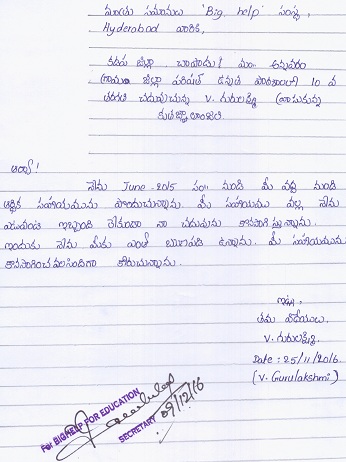 మాన్యులు సమానులు 'Big help' సంస్థ,
Hyderabad వారికి,
కడప జిల్లా చాపాడు మం॥ అన్నవరం
గ్రామం జిల్లా పరిషత్ ఉన్నత పాఠశాలలో 10 వ
తరగతి చదువుచున్న V. గురులక్ష్మి వ్రాసుకున్న
ఆర్యా!
నేను June-2015 సం॥ నుండి మీ వద్ద నుండి
ఆర్థిక సహాయమును పొందుచున్నాను. మీ సహాయము వల్ల, నేను
ఎటువంటి ఇబ్బంది లేకుండా నా చదువును కొనసాగిస్తున్నాను.
ఇందుకు నేను మీకు ఎంతో ఋణపడి ఉన్నాను. మీ సహాయమును
కొనసాగించవలసిందిగా కోరుచున్నాను.
ఇట్లు,
తమ విధేయులు.
V. గురులక్ష్మి.
Date: 25/11/2016.
(V. Gurulakshmi)
For BIGHELP FOR EDUCATION
SECRETARY 09/12/16